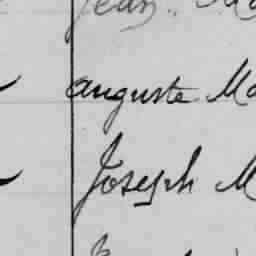 Jean
Auguste Ma
Joseph M